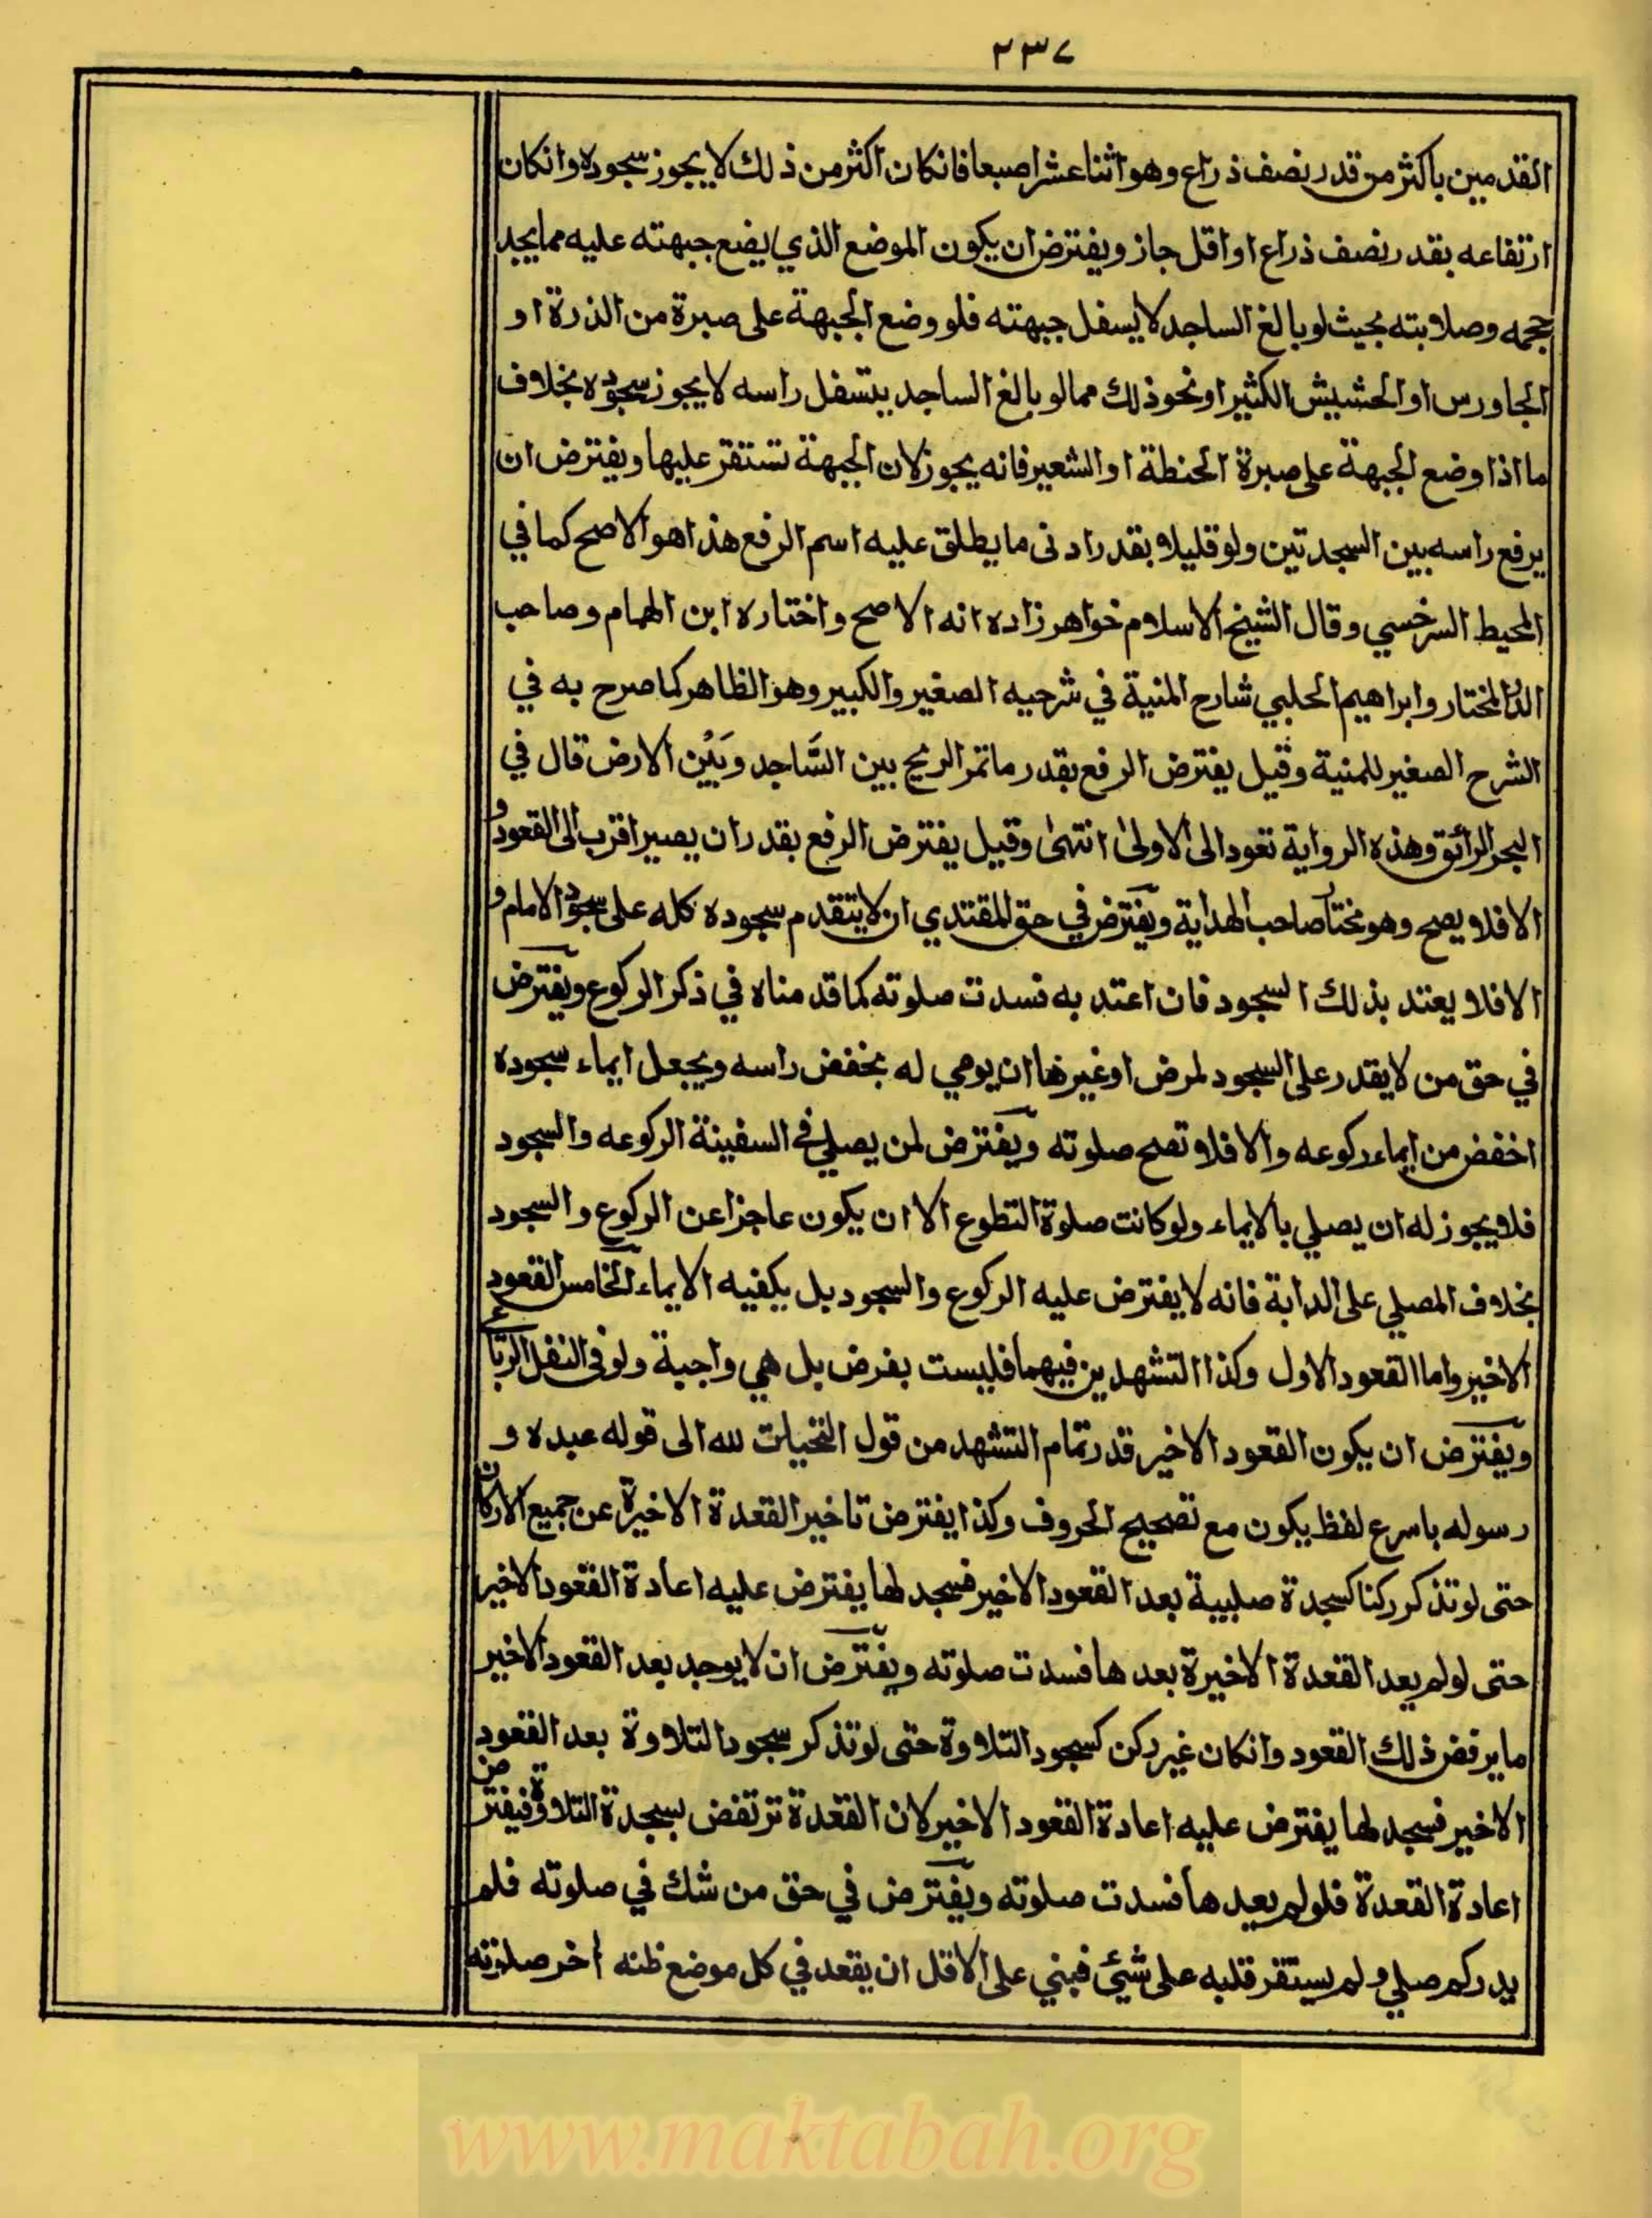 ٢٣٧
القدمين باكثر من قدر نصف ذراع وهو اثنا عشر اصبعا فانكان اكثر من ذلك لا يجوز سجوده وانكان
ارتفاعه بقدر نصف ذراع او اقل جاز ويفترض ان يكون الموضع الذي يضع جبهته عليه مما يجد
حجمه وصلابته بحيث لو بالغ الساجد لا يسفل جبهته فلو وضع الجبهة على صبرة من الذرة او
الجاورس او الحشيش الكثير او نحو ذلك مما لو بالغ الساجد يتسفل راسه لا يجوز سجوده بخلاف
ما اذا وضع الجبهة على صبرة الحنطة او الشعير فانه يجوز لان الجبهة تستقر عليها ويفترض ان
يرفع راسه بين السجدتين ولو قليلا بقدر ادنى ما يطلق عليه اسم الرفع هذا هو الاصح كما في
المحيط السرخسي وقال الشيخ الاسلام خواهر زاده انه الاصح واختاره ابن الهمام وصاحب
الدر المختار وابراهيم الحلبي شارح المنية في شرحيه الصغير والكبير وهو الظاهر كما صرح به في
الشرح الصغير للمنية وقيل يفترض الرفع بقدر ما تمر الريح بين السَّاجد وبَيْن الارض قال في
البحر الرائق وهذه الرواية تعود الى الاولىٰ انتهىٰ وقيل يفترض الرفع بقدر ان يصير اقرب الى القعود و
الا فلا يصح وهو مختار صاحب الهداية ويفترض في حق المقتدي ان لا يتقدم سجوده كله على سجود الامام و
الا فلا يعتد بذلك السجود فان اعتد به فسدت صلوته كما قدمناه في ذكر الركوع ويفترض
في حق من لا يقدر على السجود لمرض او غيرها ان يومي له بخفض راسه ويجعل ايماء سجوده
اخفض من ايماء ركوعه والا فلا تصح صلوته ويفترض لمن يصلي في السفينة الركوعه والسجود
فلا يجوز له ان يصلي بالايماء ولو كانت صلوة التطوع الا ان يكون عاجزا عن الركوع والسجود
بخلاف المصلي على الدابة فانه لا يفترض عليه الركوع والسجود بل يكفيه الايماء الخامس القعود
الاخير واما القعود الاول وكذا التشهدين فيهما فليست بفرض بل هي واجبة ولو في النفل الرباعي
ويفترض ان يكون القعود الاخير قدر تمام التشهد من قول التحيات لله الى قوله عبده و
رسوله باسرع لفظ يكون مع تصحيح الحروف وكذا يفترض تاخير القعدة الاخيرة عن جميع الاركان
حتى لو تذكر ركنا كسجدة صلبية بعد القعود الاخير فسجد لها يفترض عليه اعادة القعود الاخير
حتى لو لم يعد القعدة الاخيرة بعدها فسدت صلوته ويفترض ان لا يوجد بعد القعود الاخير
ما يرفض ذلك القعود وانكان غير ركن كسجود التلاوة حتى لو تذكر سجود التلاوة بعد القعود
الاخير فسجد لها يفترض عليه اعادة القعود الاخير لان القعدة ترتفض بسجدة التلاوة فيفترض
اعادة القعدة فلو لم يعيدها فسدت صلوته ويفترض في حق من شك في صلوته فلم
يدر كم صلي ولم يستقر قلبه على شيئ فبني على الاقل ان يقعد في كل موضع ظنه اخر صلوته
www.maktabah.org